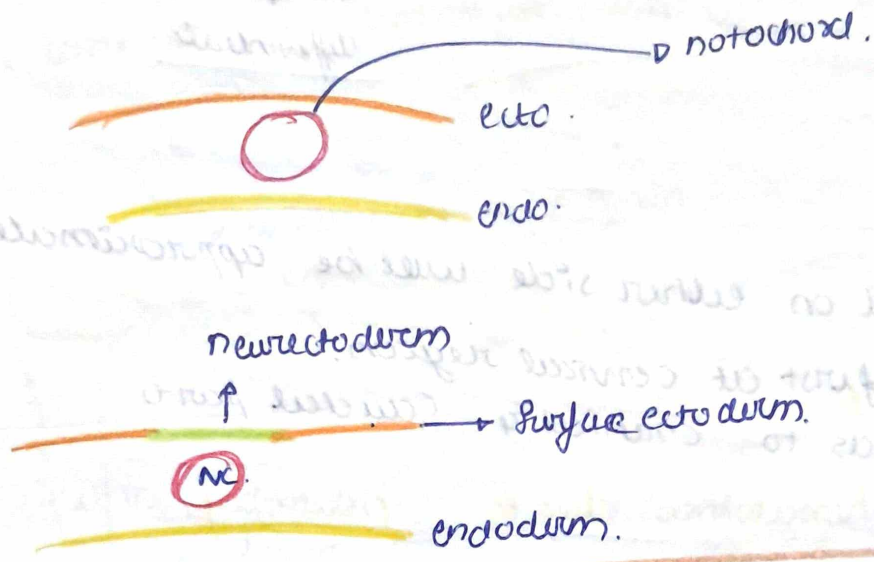 notochord.
ecto.
endo.
neurectoderm
surface ectoderm.
NC.
endoderm.